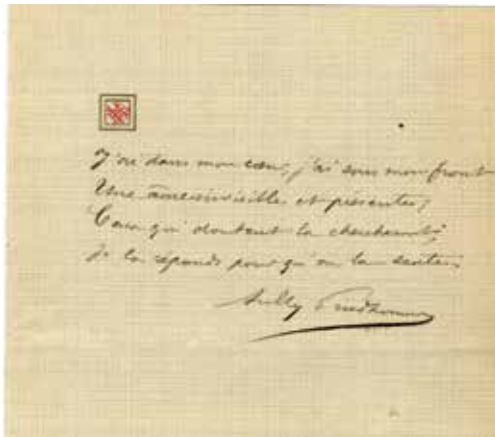 J'ai dans mon cœur, j'ai sous mon front
Une âme invisible et présente;
Ceux qui doutent la chercheront;
Je la répands pour qu'on la sente.
Sully Prudhomme